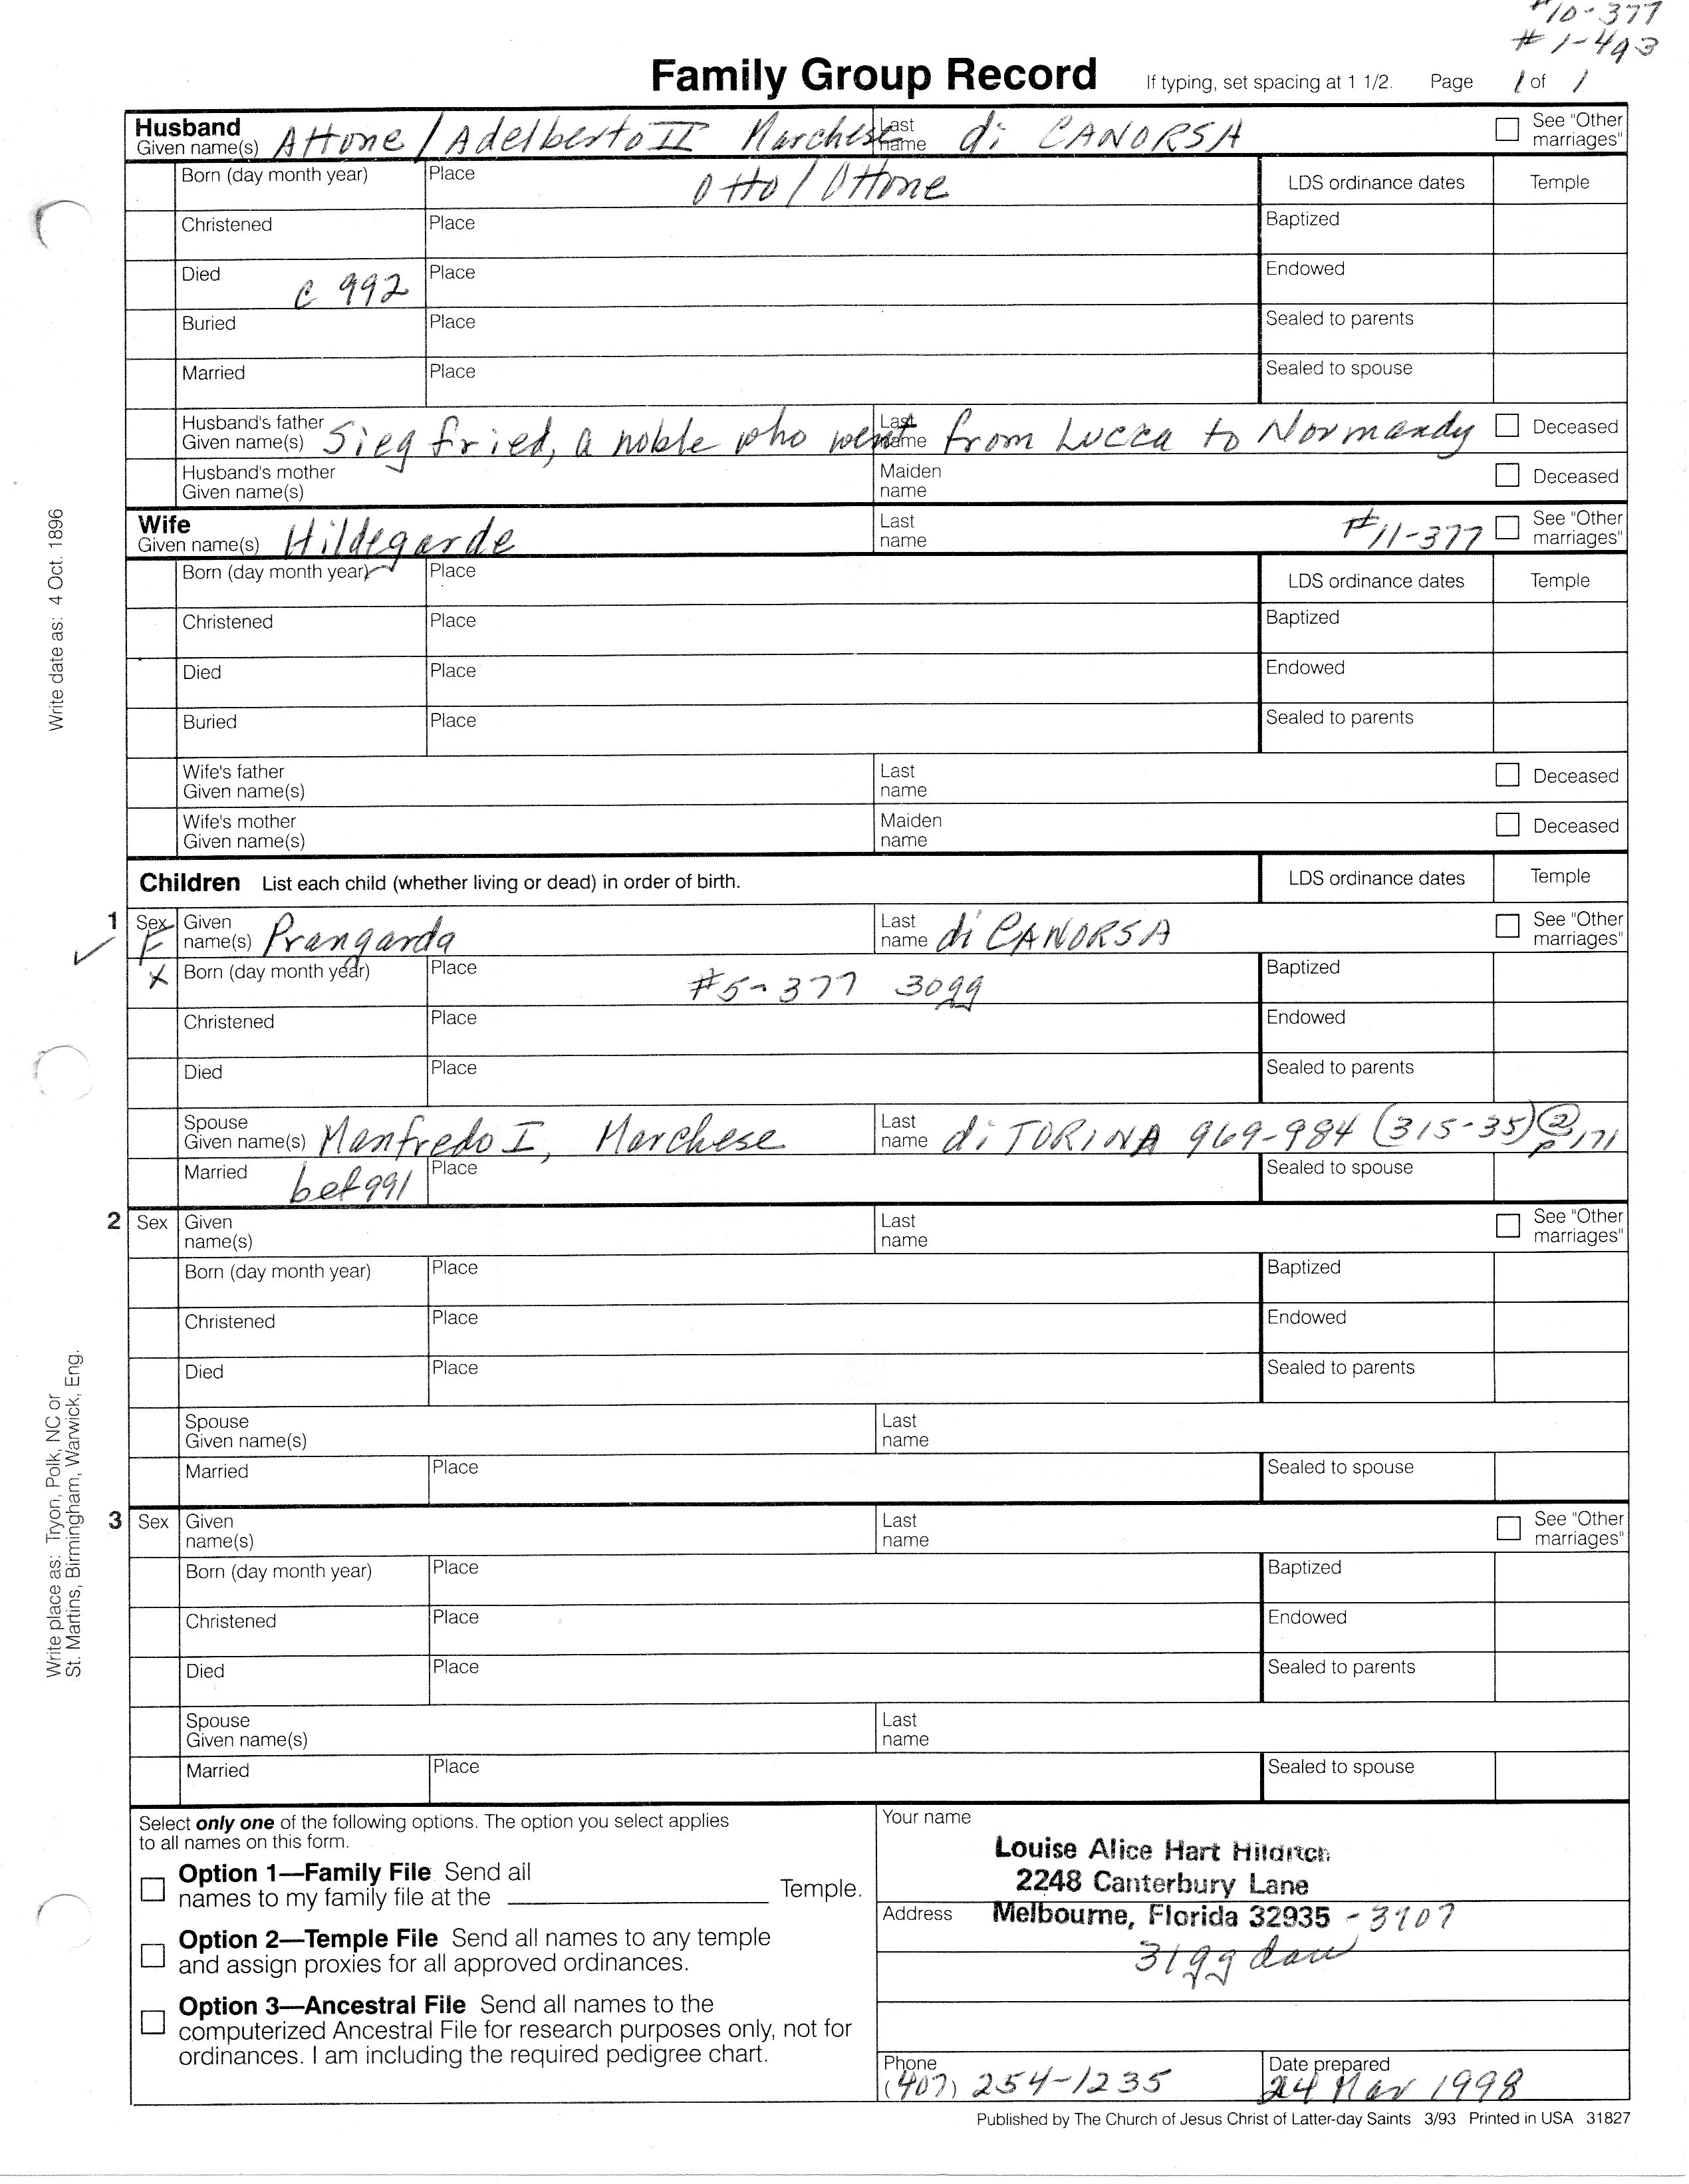 #10-377
#1-493
Family Group Record If typing, set spacing at 1 1/2. Page 1 of 1
Husband
Given name(s) Attone / Adelberto II Marchese Last name di CANORSA See "Other marriages"
Born (day month year) Place Otto / Ottone LDS ordinance dates Temple
Christened Place Baptized
Died c 992 Place Endowed
Buried Place Sealed to parents
Married Place Sealed to spouse
Husband's father Given name(s) Siegfried, a noble who went Last name from Lucca to Normandy Deceased
Husband's mother Given name(s) Maiden name Deceased
Wife
Given name(s) Hildegarde Last name #11-377 See "Other marriages"
Born (day month year) Place LDS ordinance dates Temple
Christened Place Baptized
Died Place Endowed
Buried Place Sealed to parents
Wife's father Given name(s) Last name Deceased
Wife's mother Given name(s) Maiden name Deceased
Children List each child (whether living or dead) in order of birth. LDS ordinance dates Temple
1 Sex F Given name(s) Prangarda Last name di CANORSA See "Other marriages"
X Born (day month year) Place #5-377 30gg Baptized
Christened Place Endowed
Died Place Sealed to parents
Spouse Given name(s) Manfredo I, Marchese Last name di TORINA 969-984 (315-35) @ p 171
Married bef 991 Place Sealed to spouse
2 Sex Given name(s) Last name See "Other marriages"
Born (day month year) Place Baptized
Christened Place Endowed
Died Place Sealed to parents
Spouse Given name(s) Last name
Married Place Sealed to spouse
3 Sex Given name(s) Last name See "Other marriages"
Born (day month year) Place Baptized
Christened Place Endowed
Died Place Sealed to parents
Spouse Given name(s) Last name
Married Place Sealed to spouse
Select only one of the following options. The option you select applies
to all names on this form.
Option 1—Family File Send all
names to my family file at the Temple.
Option 2—Temple File Send all names to any temple
and assign proxies for all approved ordinances.
Option 3—Ancestral File Send all names to the
computerized Ancestral File for research purposes only, not for
ordinances. I am including the required pedigree chart.
Your name
Louise Alice Hart Hilditch
2248 Canterbury Lane
Address Melbourne, Florida 32935 - 3907
31gg dau
Phone
(407) 254-1235
Date prepared
24 Mar 1998
Published by The Church of Jesus Christ of Latter-day Saints 3/93 Printed in USA 31827
Write date as: 4 Oct. 1896
Write place as: Tryon, Polk, NC or
St. Martins, Birmingham, Warwick, Eng.